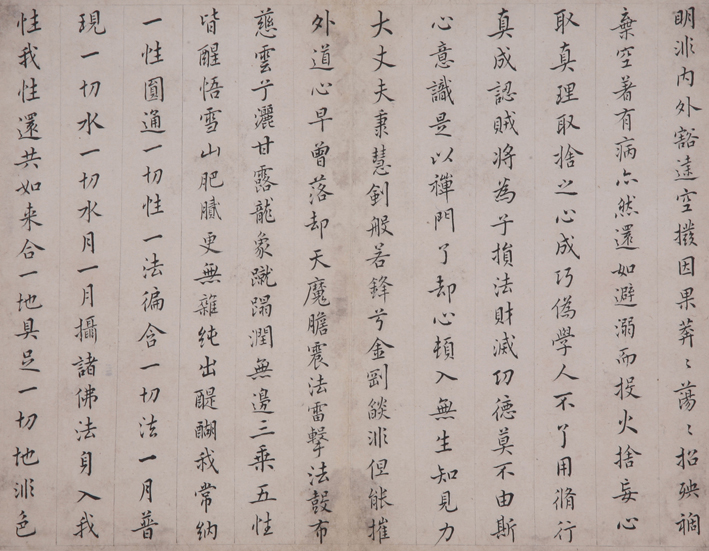 明非内外豁達空撥因果莽〻蕩〻招殃禍
棄空著有病亦然還如避溺而投火捨妄心
取真理取捨之心成巧偽學人不了用脩行
真成認賊將為子損法財滅功德莫不由斯
心意識是以禪門了却心頓入無生知見力
大丈夫秉慧劍般若鋒兮金剛燄非但能摧
外道心早曾落却天魔膽震法雷擊法鼓布
慈雲兮灑甘露龍象蹴蹋潤無邊三乘五性
皆醒悟雪山肥膩更無雜純出醍醐我常納
一性圓通一切性一法徧含一切法一月普
現一切水一切水月一月攝諸佛法身入我
性我性還共如来合一地具足一切地非色